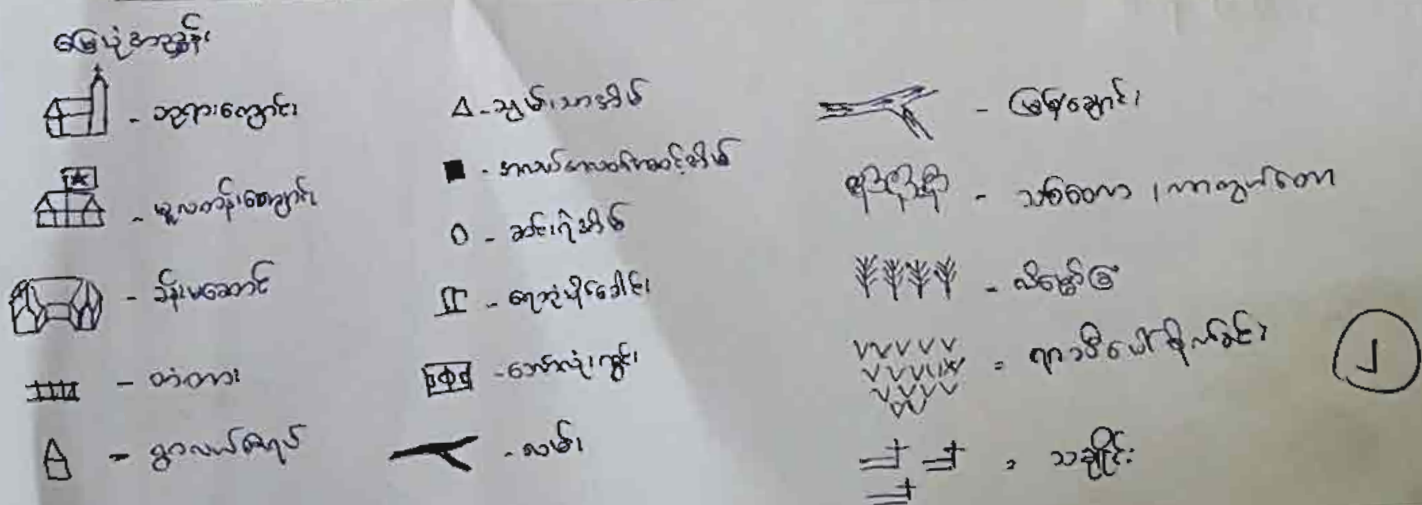 မြေပုံအညွှန်း
- ဘုရားကျောင်း
- မူလတန်းကျောင်း
- ခန်းမဆောင်
- တံတား
- ရွာလယ်
- သာအိမ်
- အလယ်အလတ်အဆင့်အိမ်
- ဆင်းရဲအိမ်
- ရေဘုံပိုင်ခေါင်း
- ဘောလုံးကွင်း
- လမ်း
- မြစ်ချောင်း
- သစ်တော
- လိမ္မော်ခြံ
= ရာသီပေါ်စိုက်ခင်း
= သချိုင်း
၂